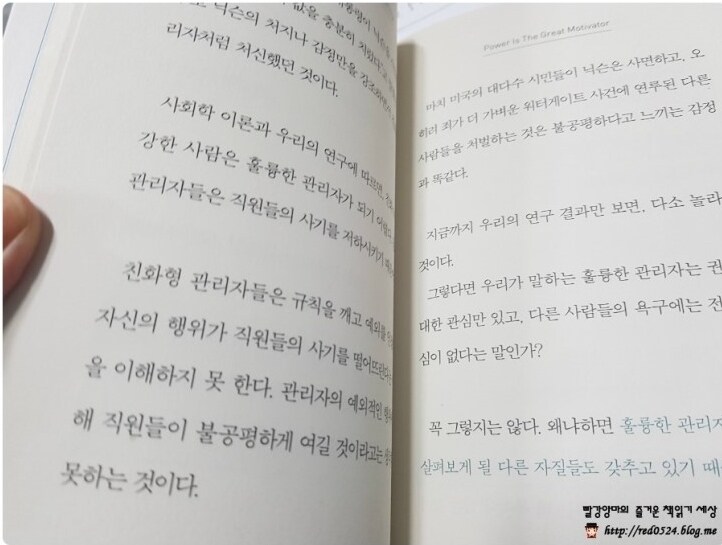 값을 충분히 치렀다고
닉슨의 처지나 감정만을 강조하면서
리자처럼 처신했던 것이다.
사회학 이론과 우리의 연구에 따르면, 친화
강한 사람은 훌륭한 관리자가 되기 어렵다.
관리자들은 직원들의 사기를 저하시키기 때
친화형 관리자들은 규칙을 깨고 예외를
자신의 행위가 직원들의 사기를 떨어뜨린다는
을 이해하지 못 한다. 관리자의 예외적인
해 직원들이 불공평하게 여길 것이라고는
못하는 것이다.
Power Is The Great Motivator
마치 미국의 대다수 시민들이 닉슨은 사면하고, 오
히려 죄가 더 가벼운 워터게이트 사건에 연루된 다른
사람들을 처벌하는 것은 불공평하다고 느끼는 감정
과 똑같다.
지금까지 우리의 연구 결과만 보면, 다소 놀라
것이다.
그렇다면 우리가 말하는 훌륭한 관리자는 권
대한 관심만 있고, 다른 사람들의 욕구에는 전
심이 없다는 말인가?
꼭 그렇지는 않다. 왜냐하면 훌륭한 관리자
살펴보게 될 다른 자질들도 갖추고 있기 때
빨강앙마의 즐거운 책읽기 세상
http://red0524.blog.me